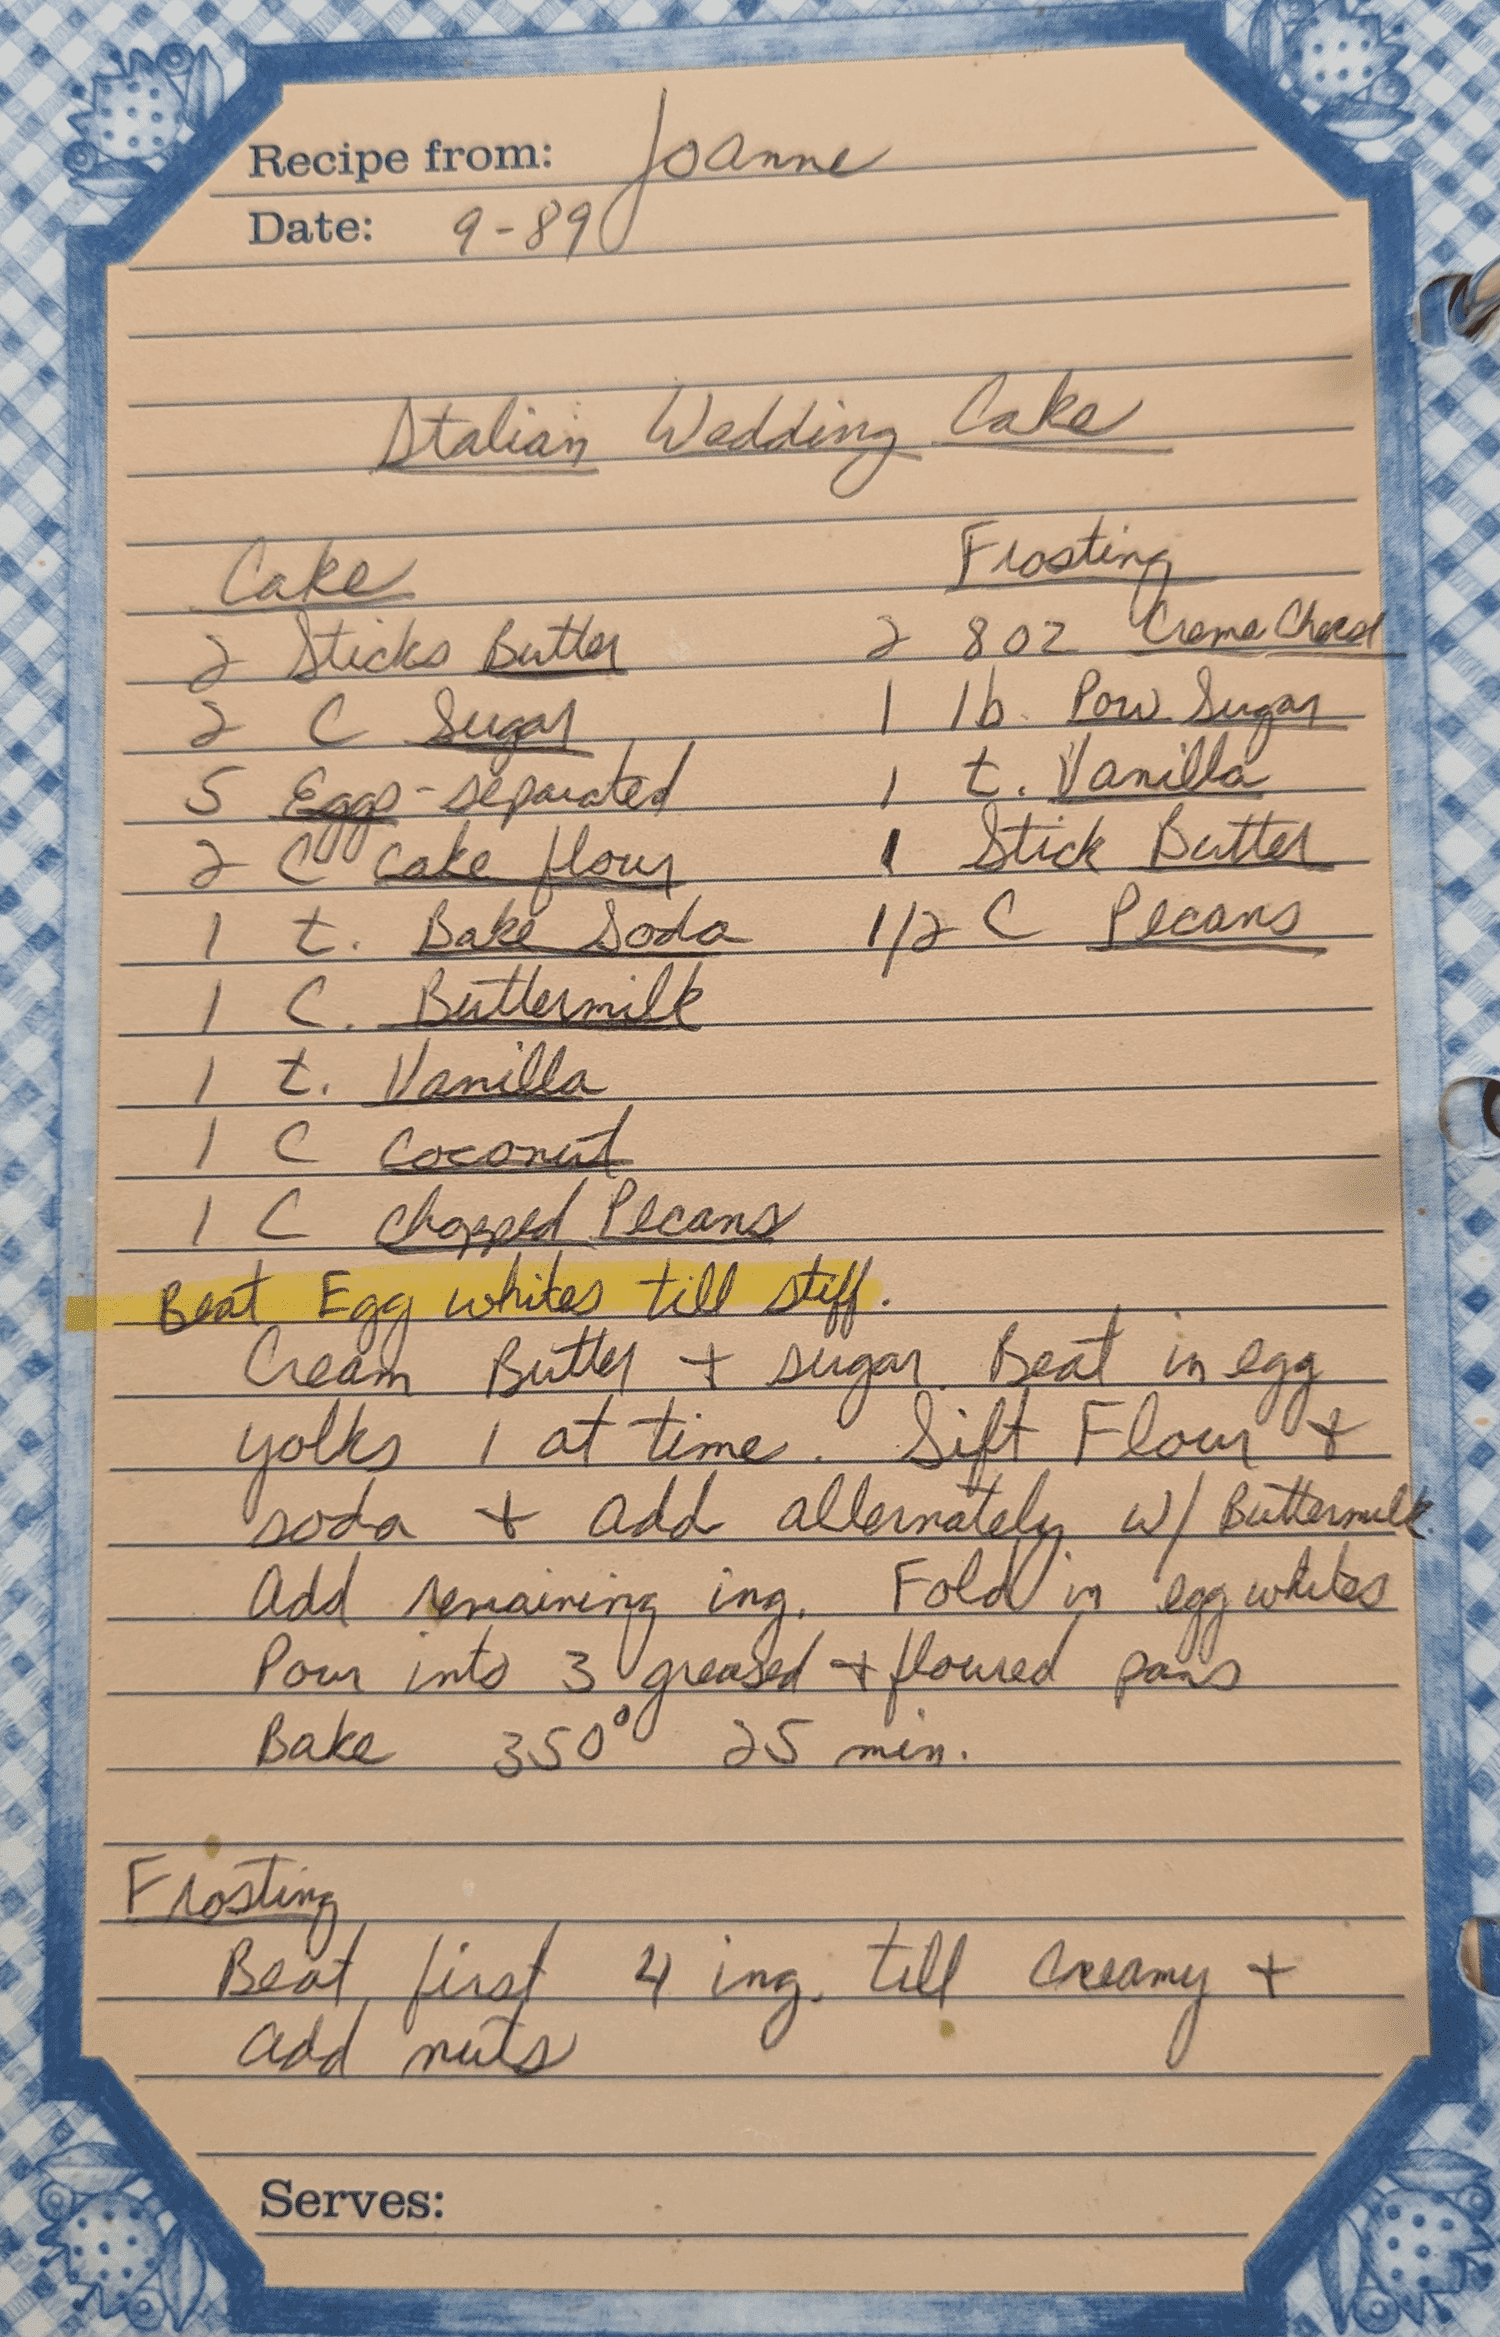 Recipe from: Joanne
Date: 9-89
Italian Wedding Cake
Cake
2 Sticks Butter
2 C Sugar
5 Eggs - separated
2 C Cake flour
1 t. Bake Soda
1 C. Buttermilk
1 t. Vanilla
1 C Coconut
1 C chopped Pecans
Frosting
2 8 oz Creme Cheese
1 lb. Pow Sugar
1 t. Vanilla
1 Stick Butter
1/2 C Pecans
Beat Egg whites till stiff.
Cream Butter + sugar. Beat in egg
yolks 1 at time. Sift Flour +
soda + add alternately w/ Buttermilk.
Add remaining ing. Fold in egg whites
Pour into 3 greased + floured pans
Bake 350° 25 min.
Frosting
Beat first 4 ing. till creamy +
add nuts
Serves: